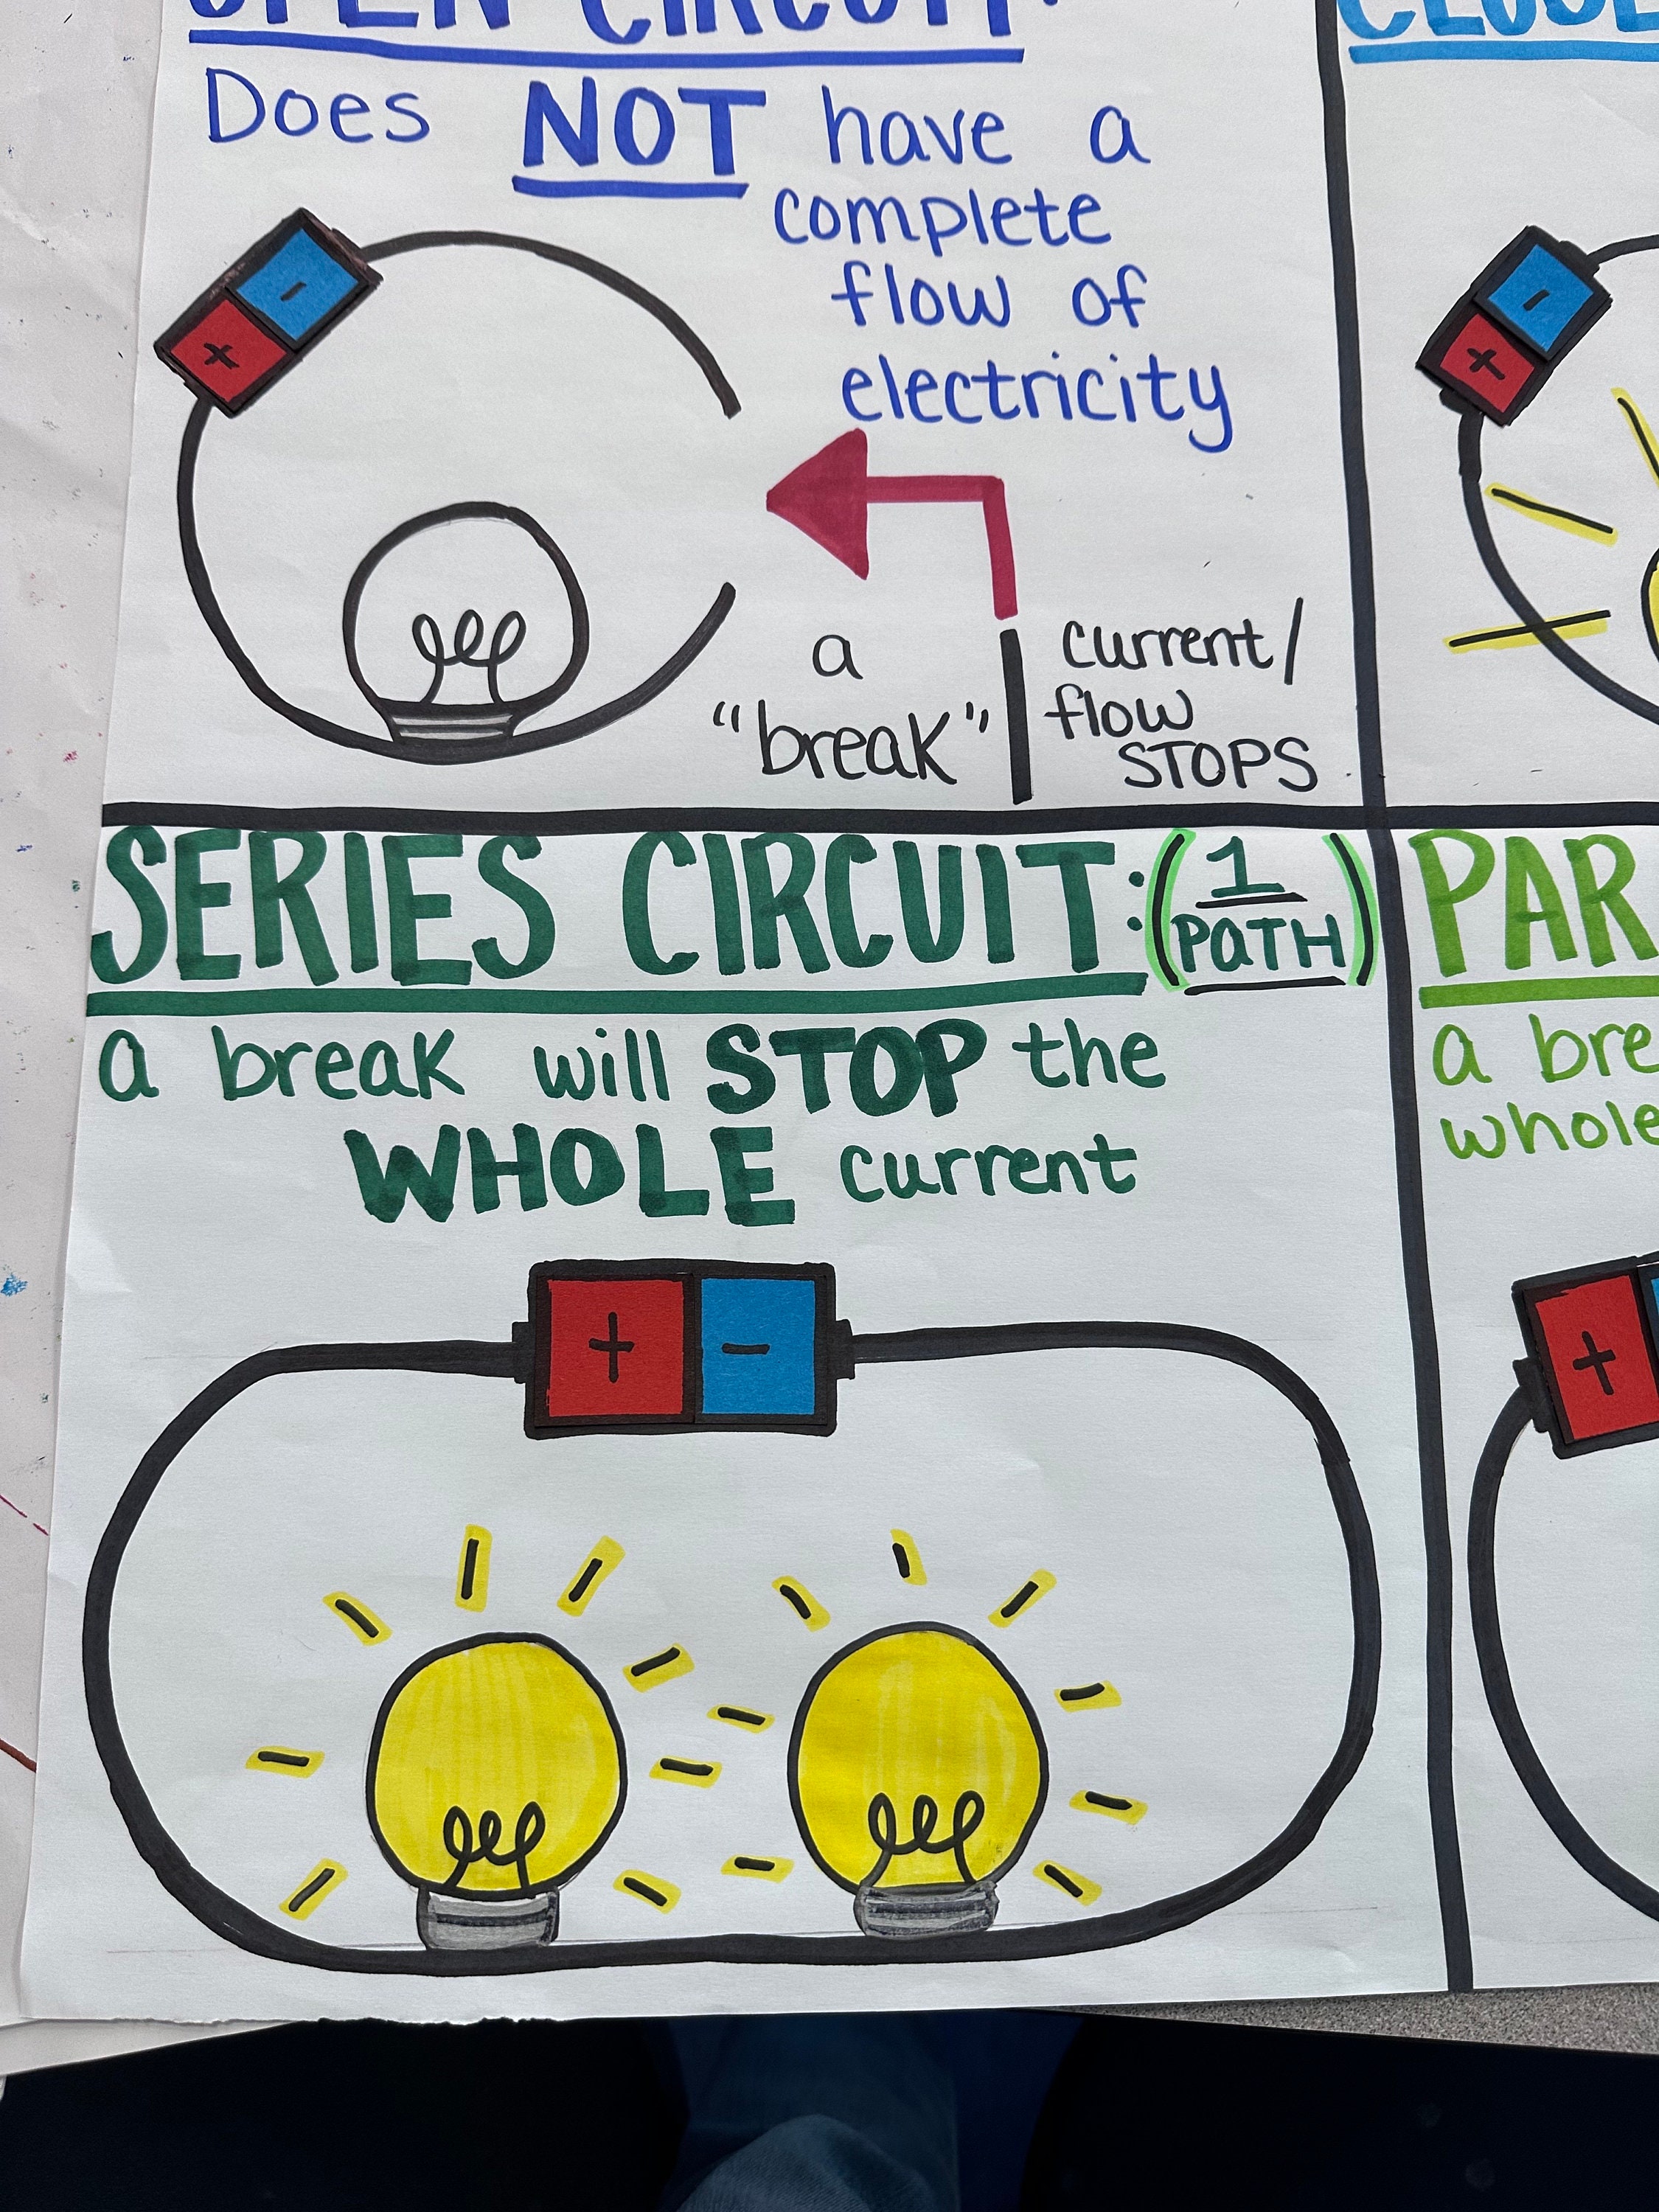 OPEN CIRCUIT:
Does NOT have a
complete
flow of
electricity
-
+
a
"break"
current/
flow
STOPS
CLOSE
-
+
SERIES CIRCUIT: (1
PATH)
a break will STOP the
WHOLE current
+ -
PAR
a bre
whole
+